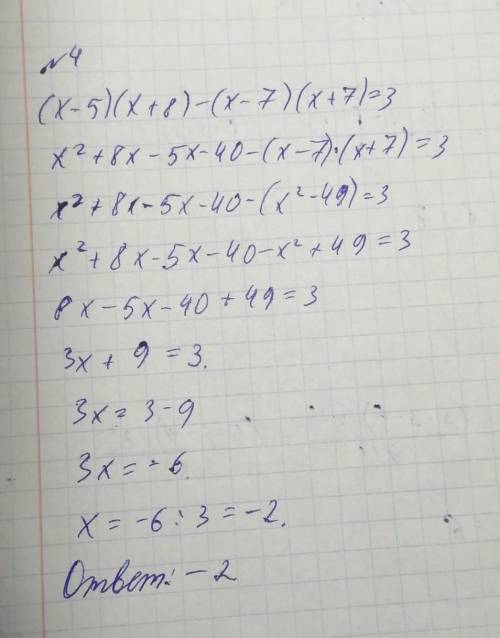 №4
(x-5)(x+8)-(x-7)(x+7)=3
x²+8x-5x-40-(x-7)·(x+7)=3
x²+8x-5x-40-(x²-49)=3
x²+8x-5x-40-x²+49=3
8x-5x-40+49=3
3x+9=3.
3x=3-9
3x=-6
x=-6:3=-2.
Ответ: -2